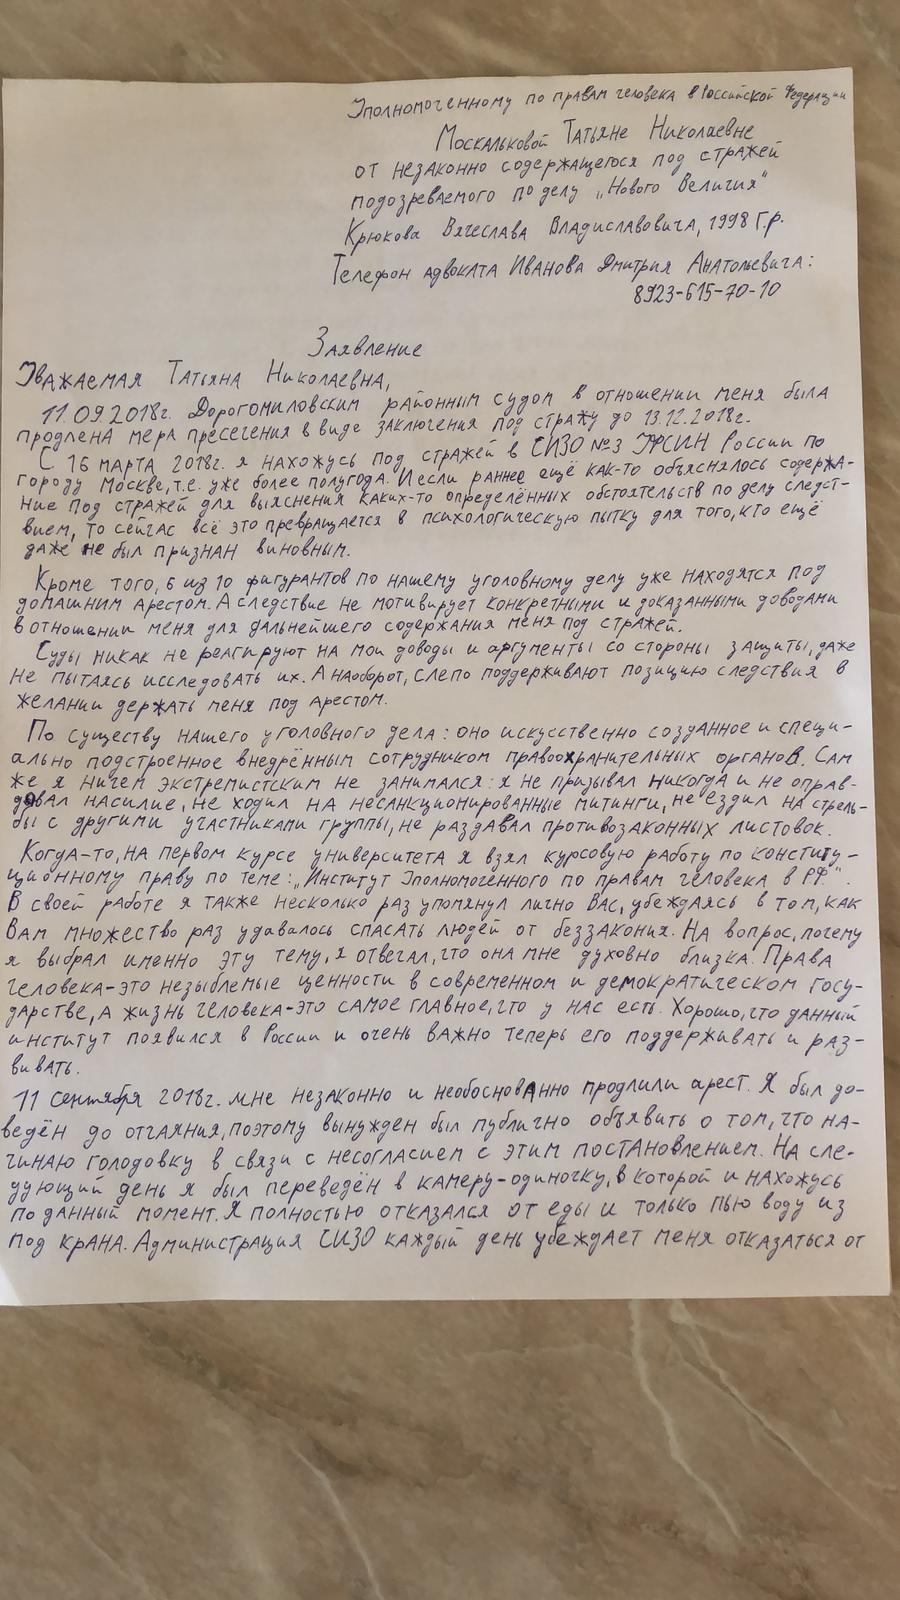 Уполномоченному по правам человека в Российской Федерации
Москальковой Татьяне Николаевне
от незаконно содержащегося под стражей
подозреваемого по делу „Нового Величия"
Крюкова Вячеслава Владиславовича, 1998 г.р.
Телефон адвоката Иванова Дмитрия Анатольевича:
8923-615-70-10
Заявление
Уважаемая Татьяна Николаевна,
11.09.2018г. Дорогомиловским районным судом в отношении меня была
продлена мера пресечения в виде заключения под стражу до 13.12.2018г.
С 16 марта 2018г. я нахожусь под стражей в СИЗО №3 УФСИН России по
городу Москве, т.е. уже более полугода. И если раннее ещё как-то объяснялось содержа-
ние под стражей для выяснения каких-то определённых обстоятельств по делу следст-
вием, то сейчас всё это превращается в психологическую пытку для того, кто ещё
даже не был признан виновным.
Кроме того, 6 из 10 фигурантов по нашему уголовному делу уже находятся под
домашним арестом. А следствие не мотивирует конкретными и доказанными доводами
в отношении меня для дальнейшего содержания меня под стражей.
Суды никак не реагируют на мои доводы и аргументы со стороны защиты, даже
не пытаясь исследовать их. А наоборот, слепо поддерживают позицию следствия в
желании держать меня под арестом.
По существу нашего уголовного дела: оно искусственно созданное и специ-
ально подстроенное внедрённым сотрудником правоохранительных органов. Сам
же я ничем экстремистским не занимался: я не призывал никогда и не оправ-
дывал насилие, не ходил на несанкционированные митинги, не ездил на стрель-
бы с другими участниками группы, не раздавал противозаконных листовок.
Когда-то, на первом курсе университета я взял курсовую работу по конститу-
ционному праву по теме: „Институт Уполномоченного по правам человека в РФ".
В своей работе я также несколько раз упомянул лично Вас, убеждаясь в том, как
Вам множество раз удавалось спасать людей от беззакония. На вопрос, почему
я выбрал именно эту тему, я отвечал, что она мне духовно близка. Права
человека-это незыблемые ценности в современном и демократическом госу-
дарстве, а жизнь человека-это самое главное, что у нас есть. Хорошо, что данный
институт появился в России и очень важно теперь его поддерживать и раз-
вивать.
11 сентября 2018г. мне незаконно и необоснованно продлили арест. Я был до-
ведён до отчаяния, поэтому вынужден был публично объявить о том, что на-
чинаю голодовку в связи с несогласием с этим постановлением. На сле-
дующий день я был переведён в камеру-одиночку, в которой и нахожусь
по данный момент. Я полностью отказался от еды и только пью воду из
под крана. Администрация СИЗО каждый день убеждает меня отказаться от